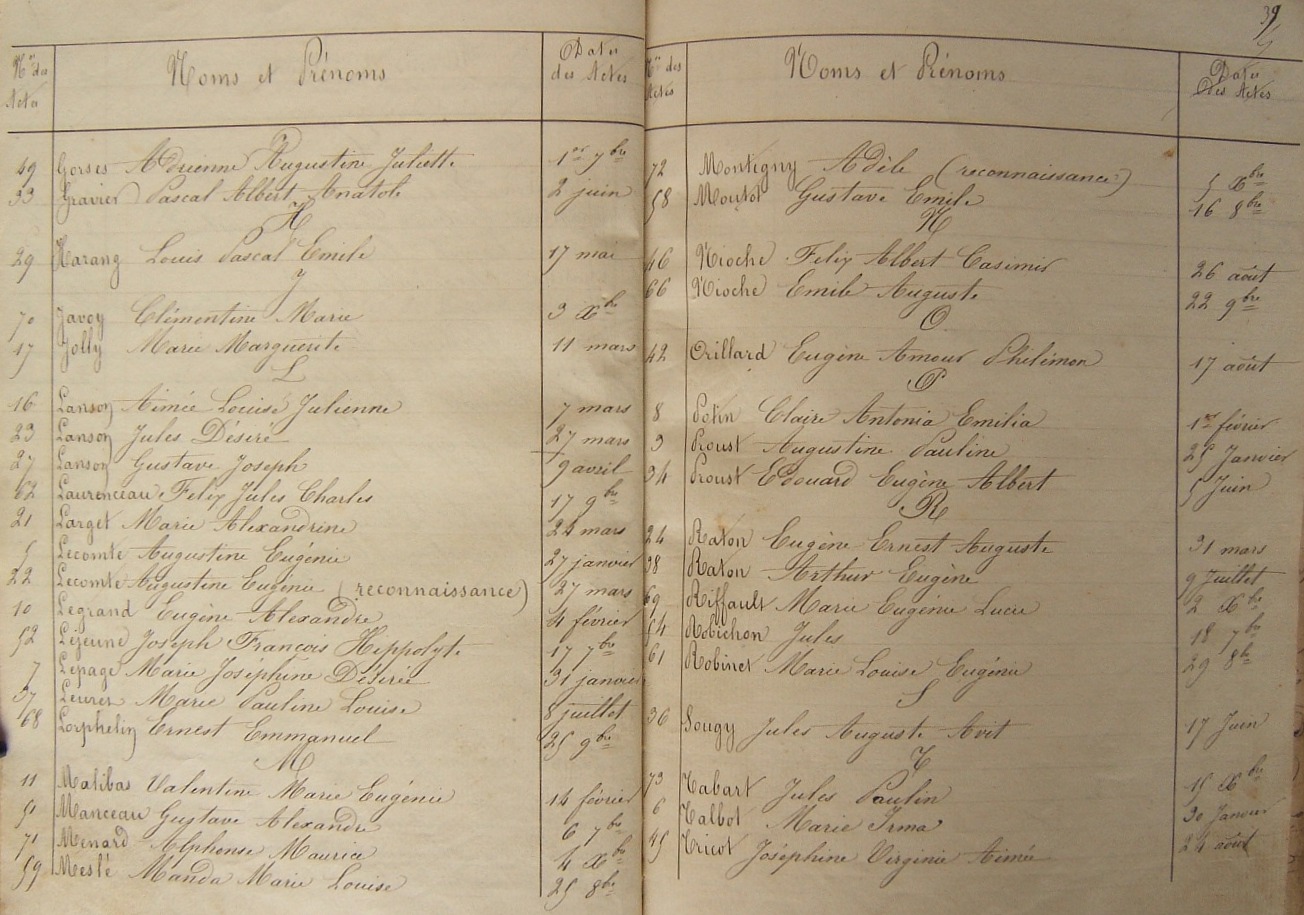 39
Nos des Actes Noms et Prénoms Dates des Actes
49 Gorsés Adrienne Augustine Juliette 1er 7bre
33 Gravier Pascal Albert Anatole 2 juin
H
29 Harang Louis Pascal Emile 17 mai
J
70 Javoy Clémentine Marie 3 Xbre
17 Jolly Marie Marguerite 11 mars
L
16 Lanson Aimée Louise Julienne 7 mars
23 Lanson Jules Désiré 27 mars
27 Lanson Gustave Joseph 9 avril
62 Laurenceau Felix Jules Charles 17 9bre
21 Larget Marie Alexandrine 24 mars
5 Lecomte Augustine Eugénie 27 janvier
22 Lecomte Augustine Eugénie (reconnaissance) 27 mars
10 Legrand Eugène Alexandre 4 février
52 Lejeune Joseph François Hippolyte 17 7bre
7 Lepage Marie Joséphine Désirée 31 janvier
37 Leuret Marie Pauline Louise 8 juillet
68 Lorphelin Ernest Emmanuel 25 9bre
M
11 Malibas Valentine Marie Eugénie 14 février
51 Manceau Gustave Alexandre 6 7bre
71 Menard Alphonse Maurice 4 Xbre
59 Meslé Manda Marie Louise 25 8bre
Nos des Actes Noms et Prénoms Dates des Actes
72 Montigny Adèle (reconnaissance) 5 Xbre
58 Moutot Gustave Emile 16 8bre
N
46 Nioche Felix Albert Casimir 26 août
66 Nioche Emile Auguste 22 9bre
O
42 Orillard Eugène Amour Philémon 17 août
P
8 Potin Claire Antonia Emilia 1er février
3 Proust Augustine Pauline 25 Janvier
34 Proust Edouard Eugène Albert 5 Juin
R
24 Raton Eugène Ernest Auguste 31 mars
38 Raton Arthur Eugène 9 Juillet
69 Riffault Marie Eugénie Lucie 2 Xbre
54 Robichon Jules 18 7bre
61 Robinet Marie Louise Eugénie 29 8bre
S
36 Sougy Jules Auguste Avit 17 Juin
T
73 Tabart Jules Paulin 15 Xbre
6 Talbot Marie Irma 30 Janvier
45 Tricot Joséphine Virginie Aimée 24 août